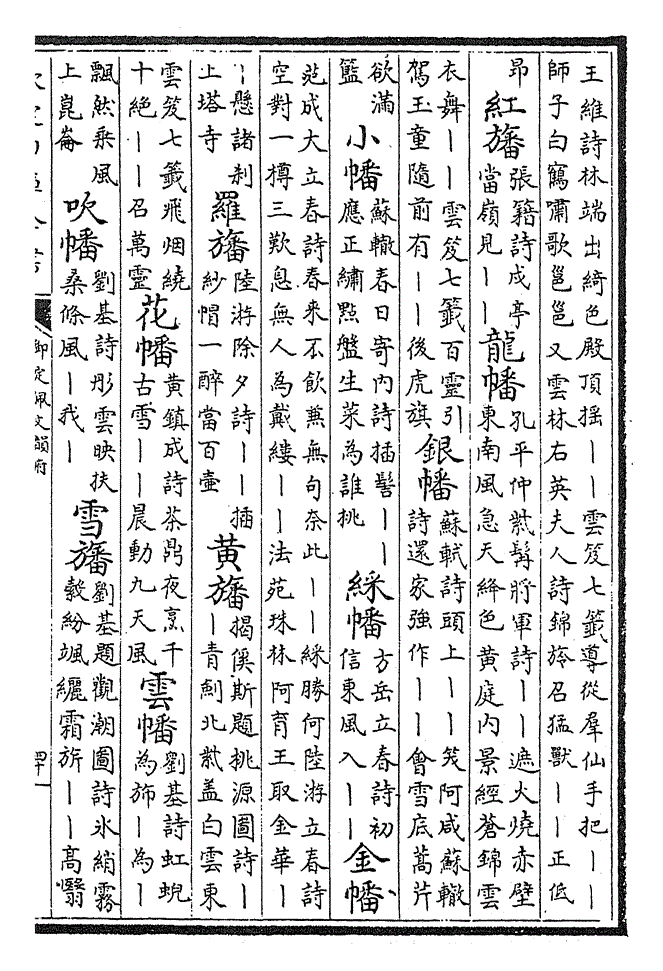 王維詩林端出綺色殿頂揺丨丨雲笈七籤導從羣仙手把丨丨
師子白鶴嘯歌邕邕又雲林右英夫人詩錦旍召猛獸丨丨正低
昂
紅旛
張籍詩戍亭
當嶺見丨丨
龍幡
孔平仲紫髯將軍詩丨丨遮火燒赤壁
東南風急天絳色黄庭内景經蒼錦雲
衣舞丨丨雲笈七籤百靈引
駕玉童隨前有丨丨後虎旗
銀幡
蘇軾詩頭上丨丨笑阿咸蘇轍
詩還家強作丨丨會雪底蒿芹
欲滿
籃
小幡
蘇轍春日寄内詩插髻丨丨
應正繡點盤生菜為誰挑
綵幡
方岳立春詩初
信東風入丨丨
金幡
范成大立春詩春来不飲兼無句奈此丨丨綵勝何陸游立春詩
空對一樽三歎息無人為戴縷丨丨法苑珠林阿育王取金華丨
丨懸諸刹
上塔寺
羅旛
陸游除夕詩丨丨插
紗帽一醉當百壷
黄旛
揭傒斯題桃源圖詩丨
丨青劍北紫蓋白雲東
雲笈七籤飛烟繞
十絶丨丨召萬靈
花幡
黄鎮成詩茶鼎夜烹千
古雪丨丨晨動九天風
雲幡
劉基詩虹蜺
為斾丨為丨
飄然乗風
上崑崙
吹幡
劉基詩彤雲映扶
桑條風丨我丨
雪旛
劉基題觀潮圖詩氷綃霧
縠紛颯纚霜旂丨丨髙翳
御定佩文韻府